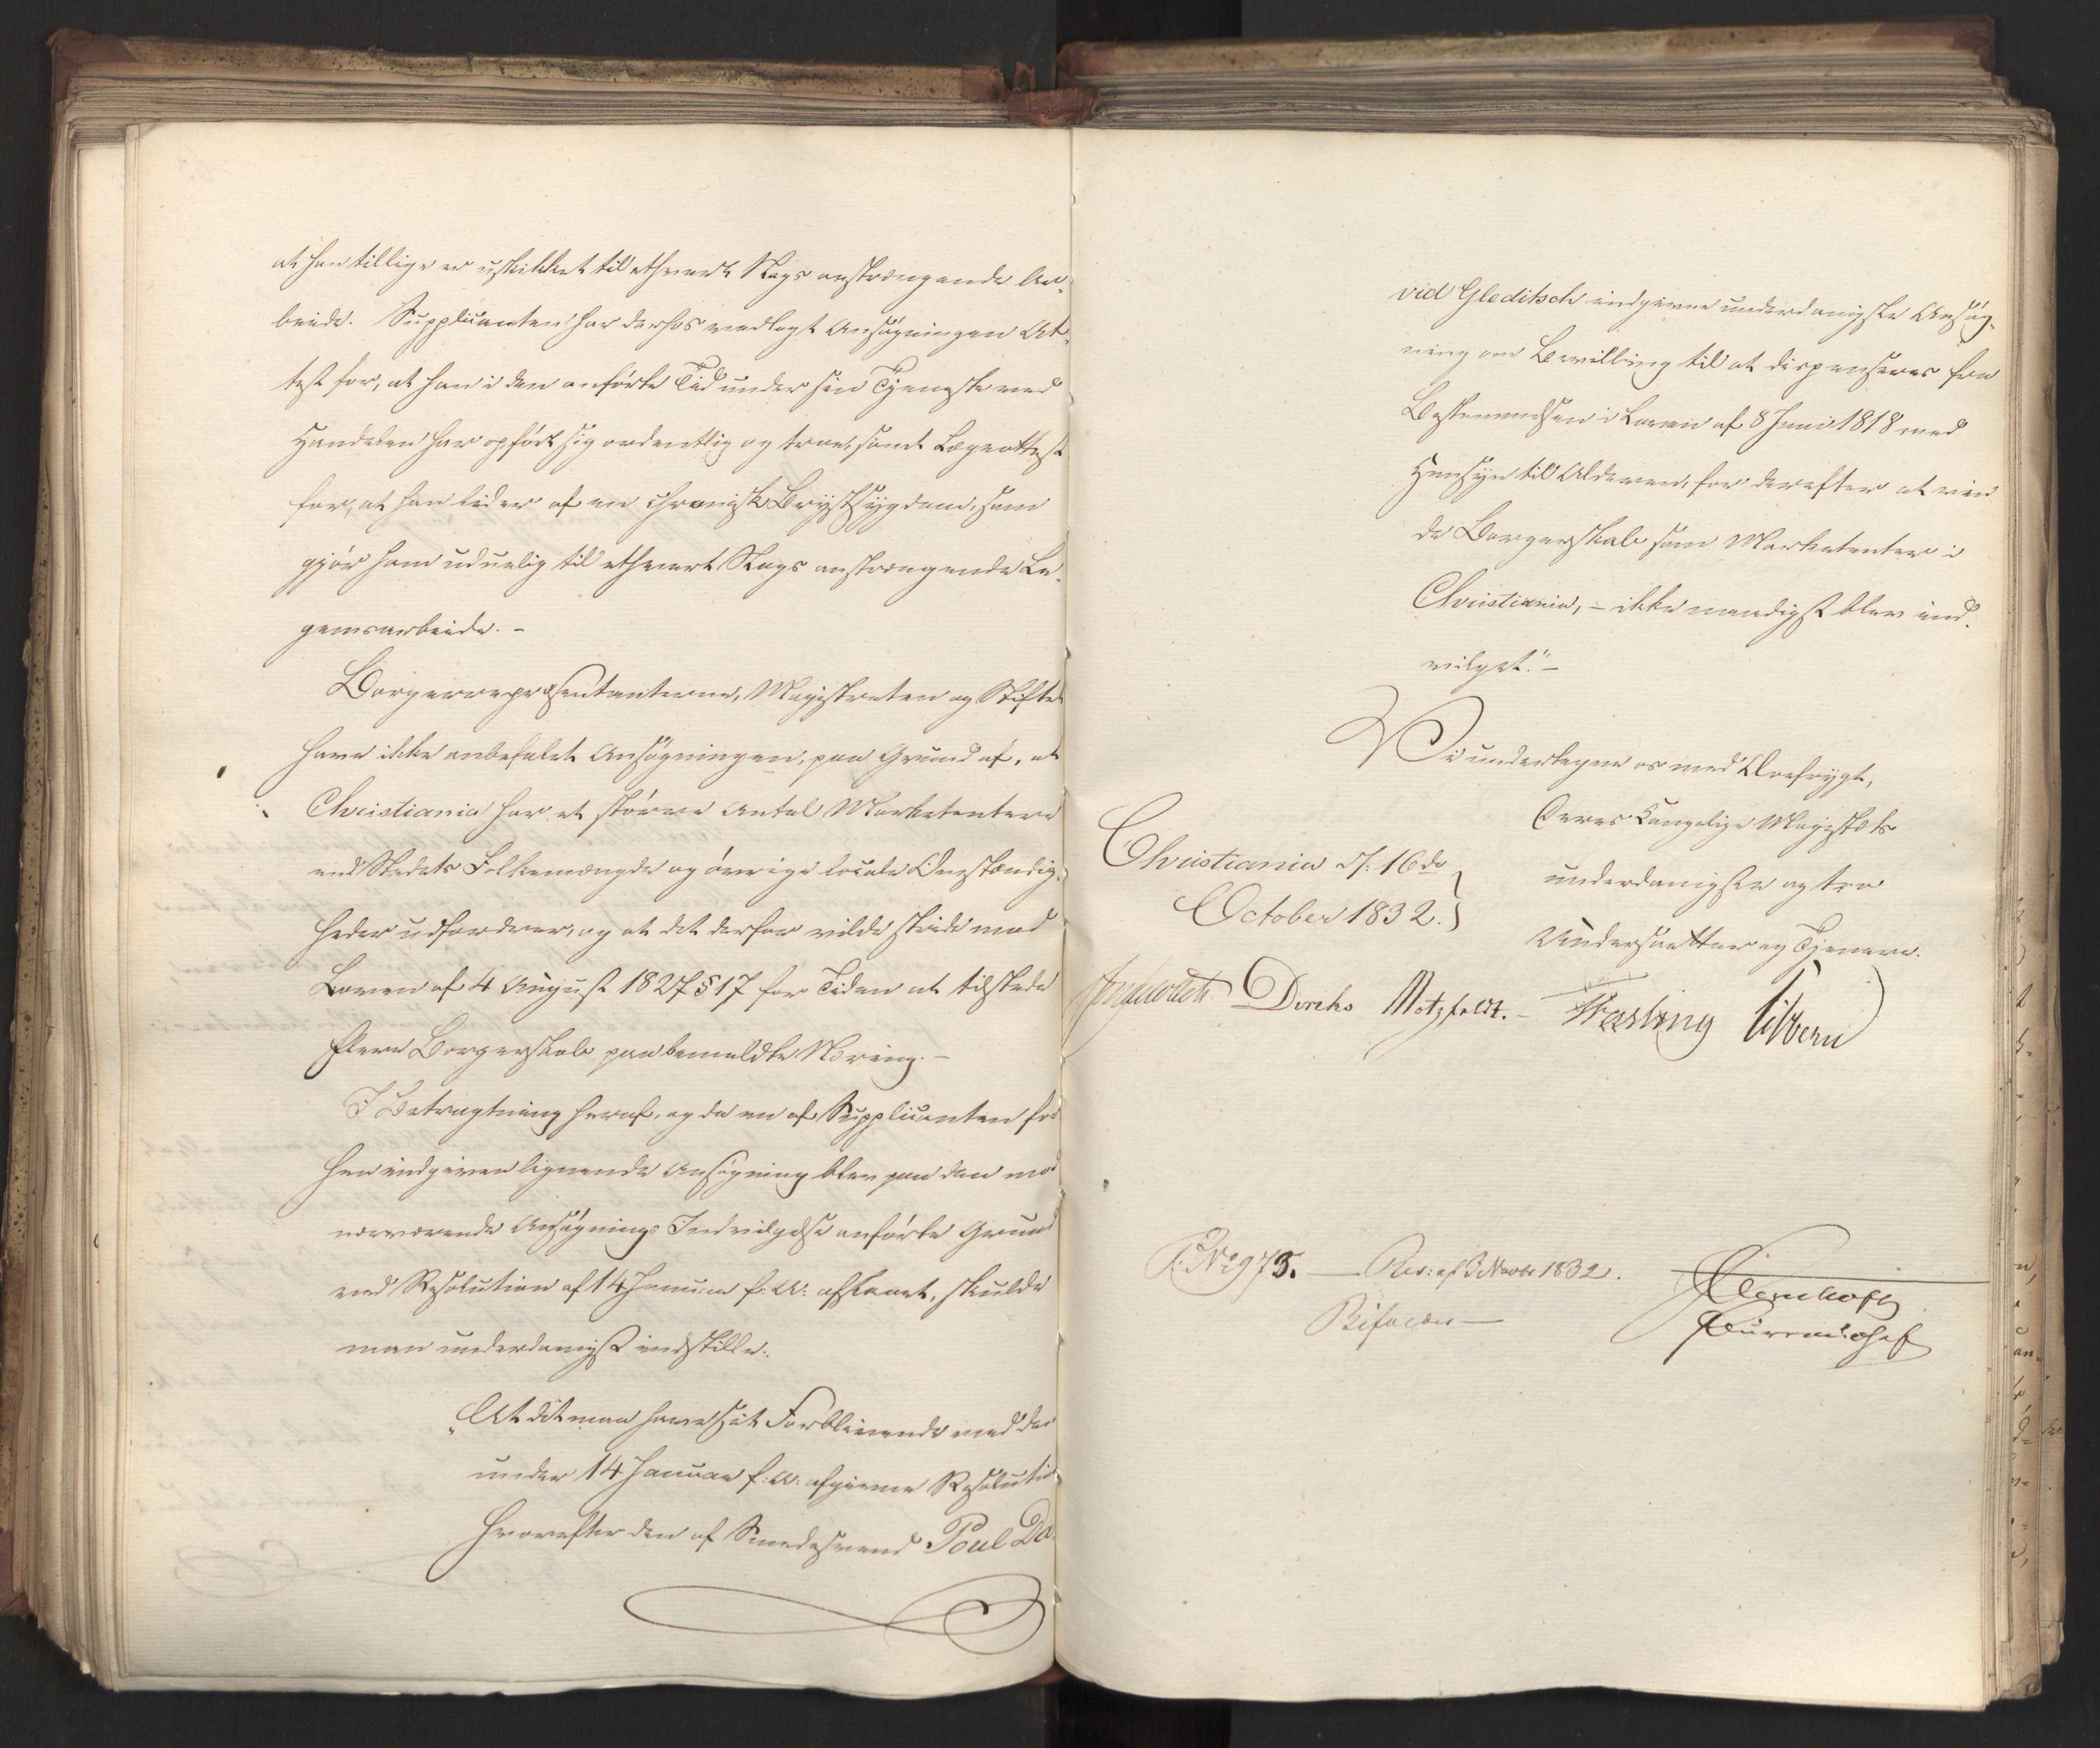 at han tillige er uskikket til ethvert Slags anstrængende Ar-
beide. Supplicanten har derhos vedlagt Ansøgningen At-
test for, at han i den anførte Tid under sin Tjeneste ved
Handelen har opført sig ordentlig og troe, samt Lægeattest
for, at han lider af en chronisk Brystsygdom, som
gjør ham uduelig til ethvert Slags anstrængende Le-
gemsarbeide. -
Borgerrepræsentanterne, Magistraten og Stiftet
have ikke anbefalet Ansøgningen, paa Grund af, at
Christiania har et større Antal Marketentere
end Stedets Folkemængde og øvrige locale Omstændig-
heder udfordrer, og at det derfor vilde stride mod
Loven af 4 August 1827 § 17 for Tiden at tilstede
flere Borgerskab paa bemeldte Næring. -
I Betragtning heraf, og da en af Supplicanten for
hen indgiven lignende Ansøgning blev paa den mod
nærværende Ansøgnings Indvilgelse anførte Grund
ved Resolution af 14 Januar f: A: afslaaet, skulde
man underdanigst indstille:
„At det maa have sit Forblivende ved den
under 14 Januar f: A: afgivne Resolution
hvorefter den af Smedesvend Poul Da-
vid Gleditsch indgivne underdanigste Ansøg-
ning om Bevilling til at dispenseres fra
Bestemmelsen i Loven af 8 Juni 1818 med
Hensyn til Alderen, for derefter at vin
de Borgerskab som Marketenter i
Christiania, - ikke naadigst blev ind-
vilget." -
Vi undertegne os med Ærefrygt,
Deres Kongelige Majestæts
Christiania d: 16de
underdanigste og troe
October 1832.
Undersaatter og Tjenere.
Diriks Motzfeldt. - Fasting Sibbern
P: No 973. - Res: af 3 Novbr 1832.
Bifaldes -
Bureauchef